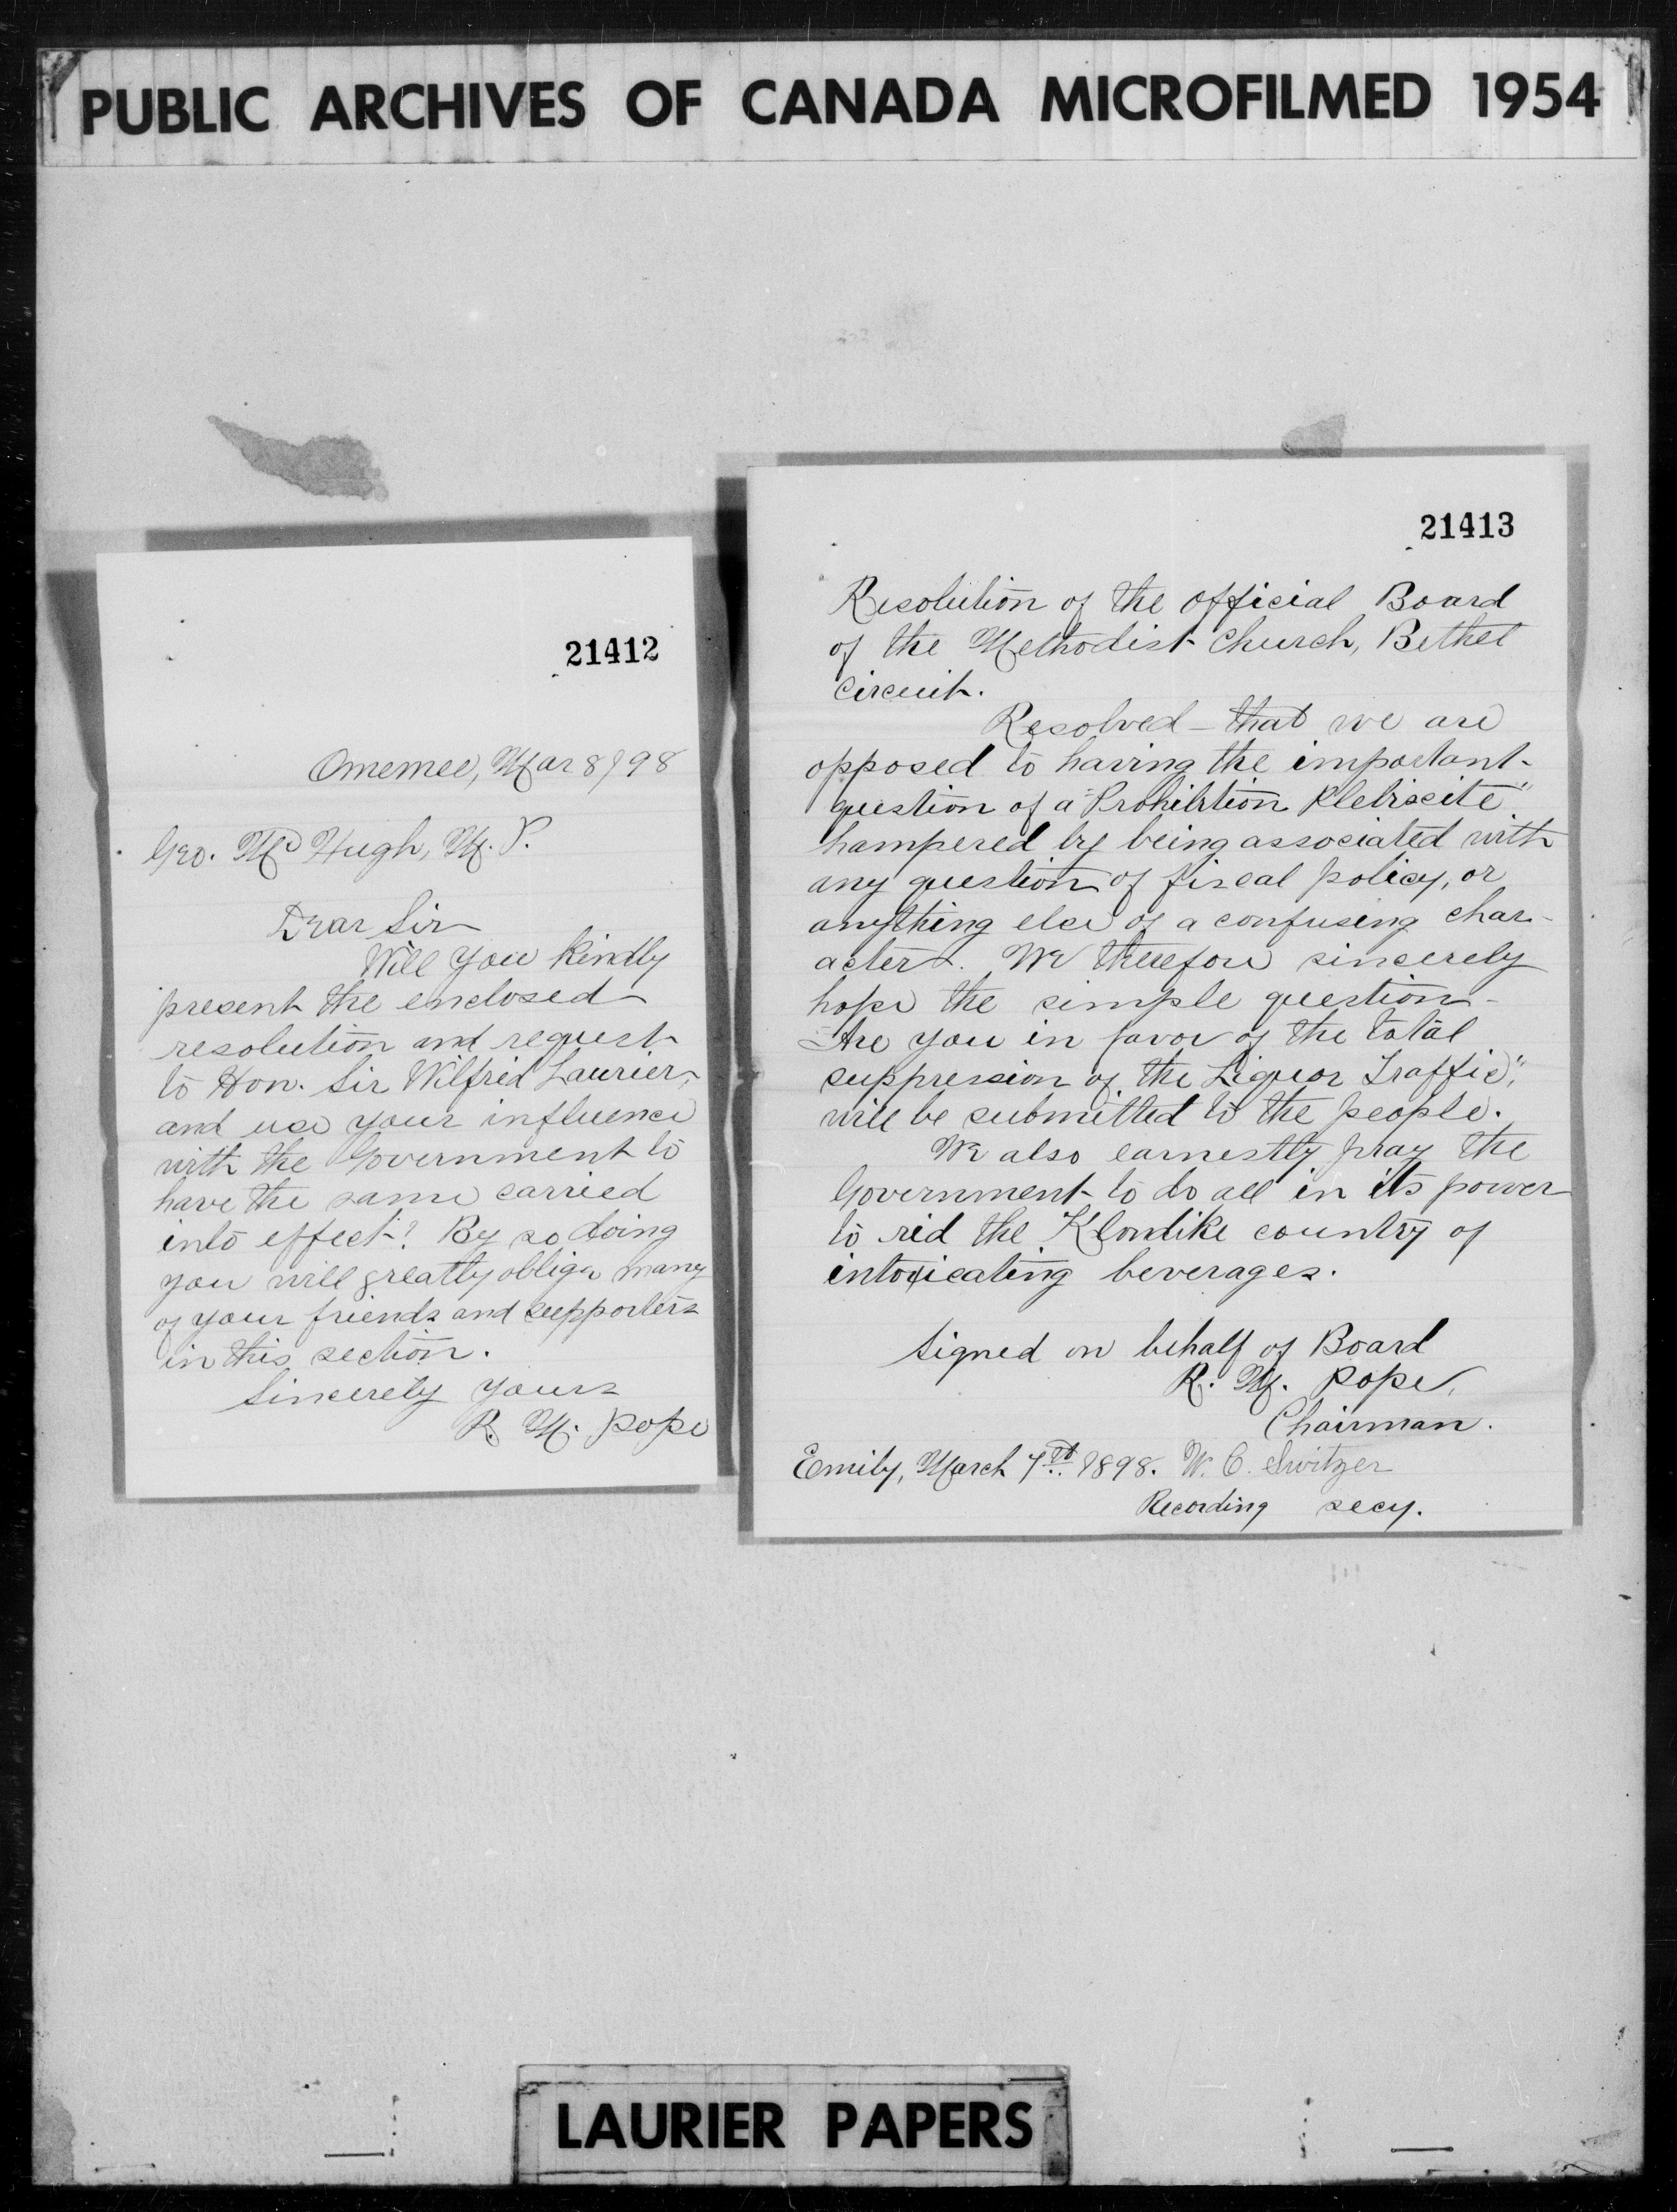 PUBLIC ARCHIVES OF CANADA MICROFILMED 1954
21412
Omemee, Mar 8/98
Geo. McHugh, M.P.
Dear Sir
Will you kindly
present the enclosed
resolution and request
to Hon. Sir Wilfrid Laurier,
and use your influence
with the Government to
have the same carried
into effect? By so doing
you will greatly oblige many
of your friends and supporters
in this section.
Sincerely yours
R. M. Pope
21413
Resolution of the Official Board
of the Methodist Church, Bethel
Circuit.
Resolved – that we are
opposed to having the important
question of a "Prohibition Plebiscite"
hampered by being associated with
any question of fiscal policy, or
anything else of a confusing char-
acter. We therefore sincerely
hope the simple question –
"Are you in favor of the total
suppression of the Liquor Traffic",
will be submitted to the people.
We also earnestly pray the
Government to do all in its power
to rid the Klondike country of
intoxicating beverages.
Signed on behalf of Board
R. M. Pope,
Chairman.
Emily, March 7th 1898. W. C. Switzer
Recording secy.
LAURIER PAPERS